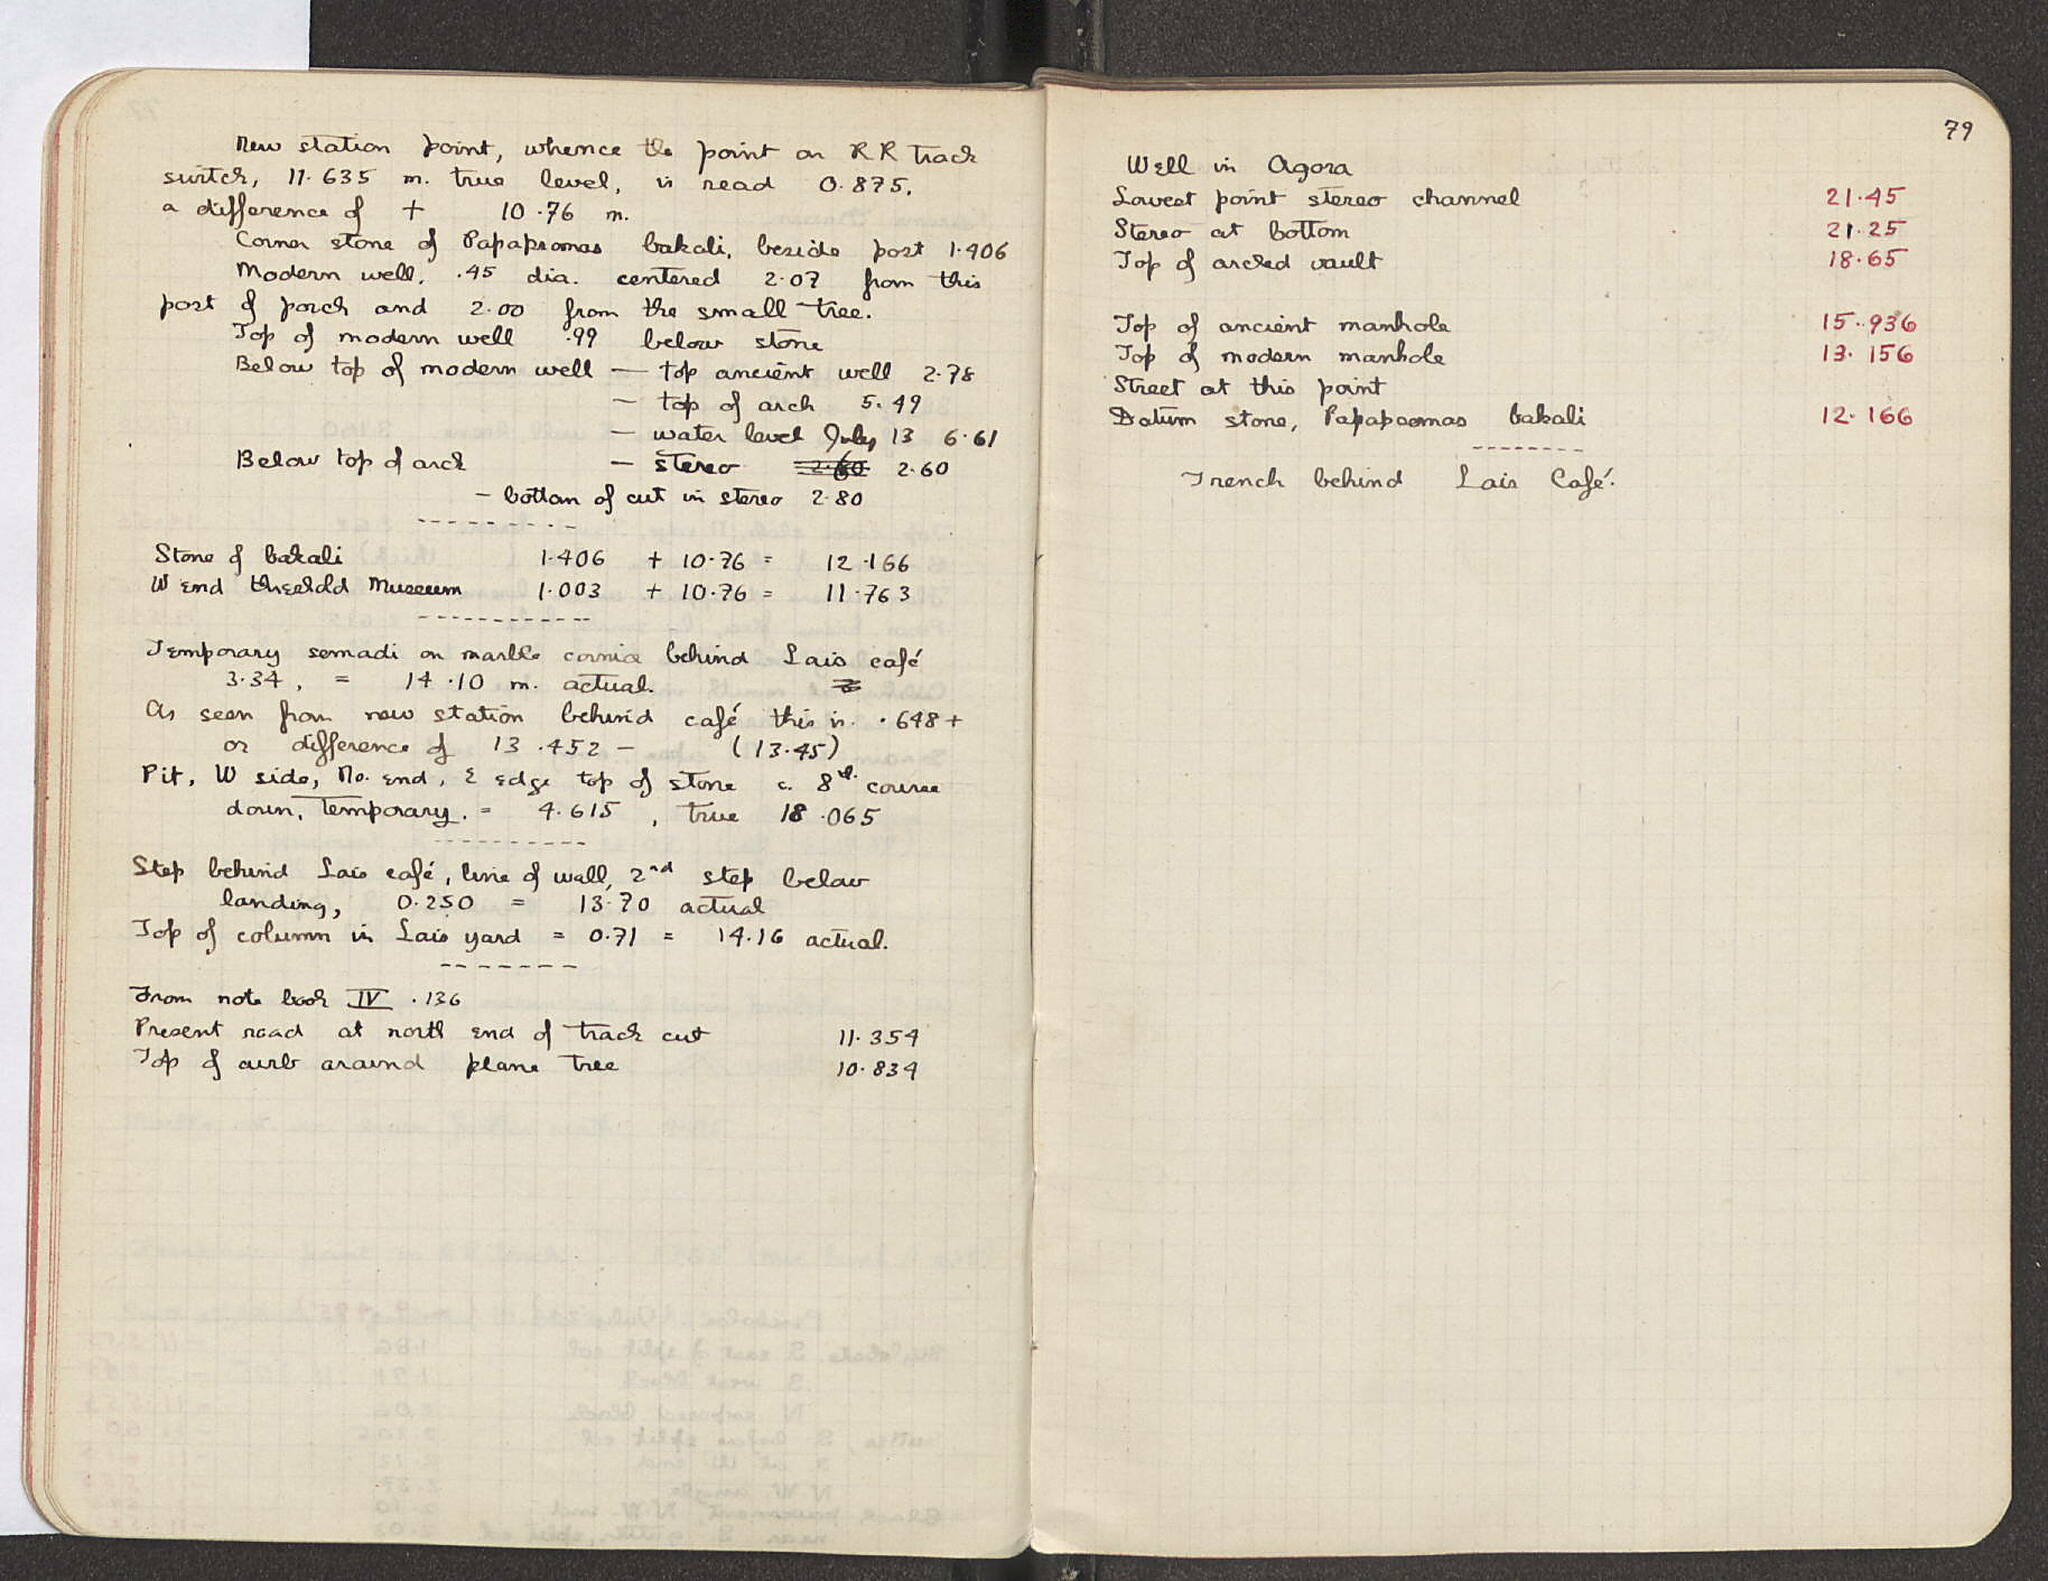 New station point, whence the point on RR track
switch, 11.635 m. true level, is read 0.875,
a difference of + 10.76 m.
Corner stone of Papapsomas bakali, beside post 1.406
Modern well, .45 dia. centered 2.07 from this
post of porch and 2.00 from the small tree.
Top of modern well .99 below stone
Below top of modern well — top ancient well 2.78
— top of arch 5.49
— water level July 13 6.61
Below top of arch — stereo 2.60 2.60
— bottom of cut in stereo 2.80
Stone of bakali 1.406 + 10.76 = 12.166
W end threshold Museum 1.003 + 10.76 = 11.763
Temporary semadi on marble cornice behind Lais café
3.34, = 14.10 m. actual.
As seen from new station behind café this is .648+
or difference of 13.452 — (13.45)
Pit, W side, No. end, E edge top of stone c. 8th course
down, temporary. = 4.615, true 18.065
Step behind Lais café, line of wall, 2nd step below
landing, 0.250 = 13.70 actual
Top of column in Lais yard = 0.71 = 14.16 actual.
From note book IV .136
Present road at north end of track cut 11.354
Top of curb around plane tree 10.834
79
Well in Agora
Lowest point stereo channel 21.45
Stereo at bottom 21.25
Top of arched vault 18.65
Top of ancient manhole 15.936
Top of modern manhole 13.156
Street at this point
Datum stone, Papapsomas bakali 12.166
Trench behind Lais Café.